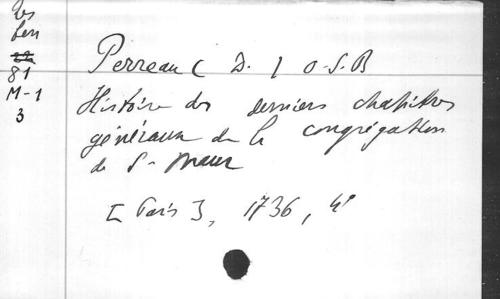 Res
ben
81
M-1
3
Perreau ( D. ) O.S.B
Histoire des derniers chapitres
généraux de la congrégation
de St Maur
[ Paris ], 1736, 4°